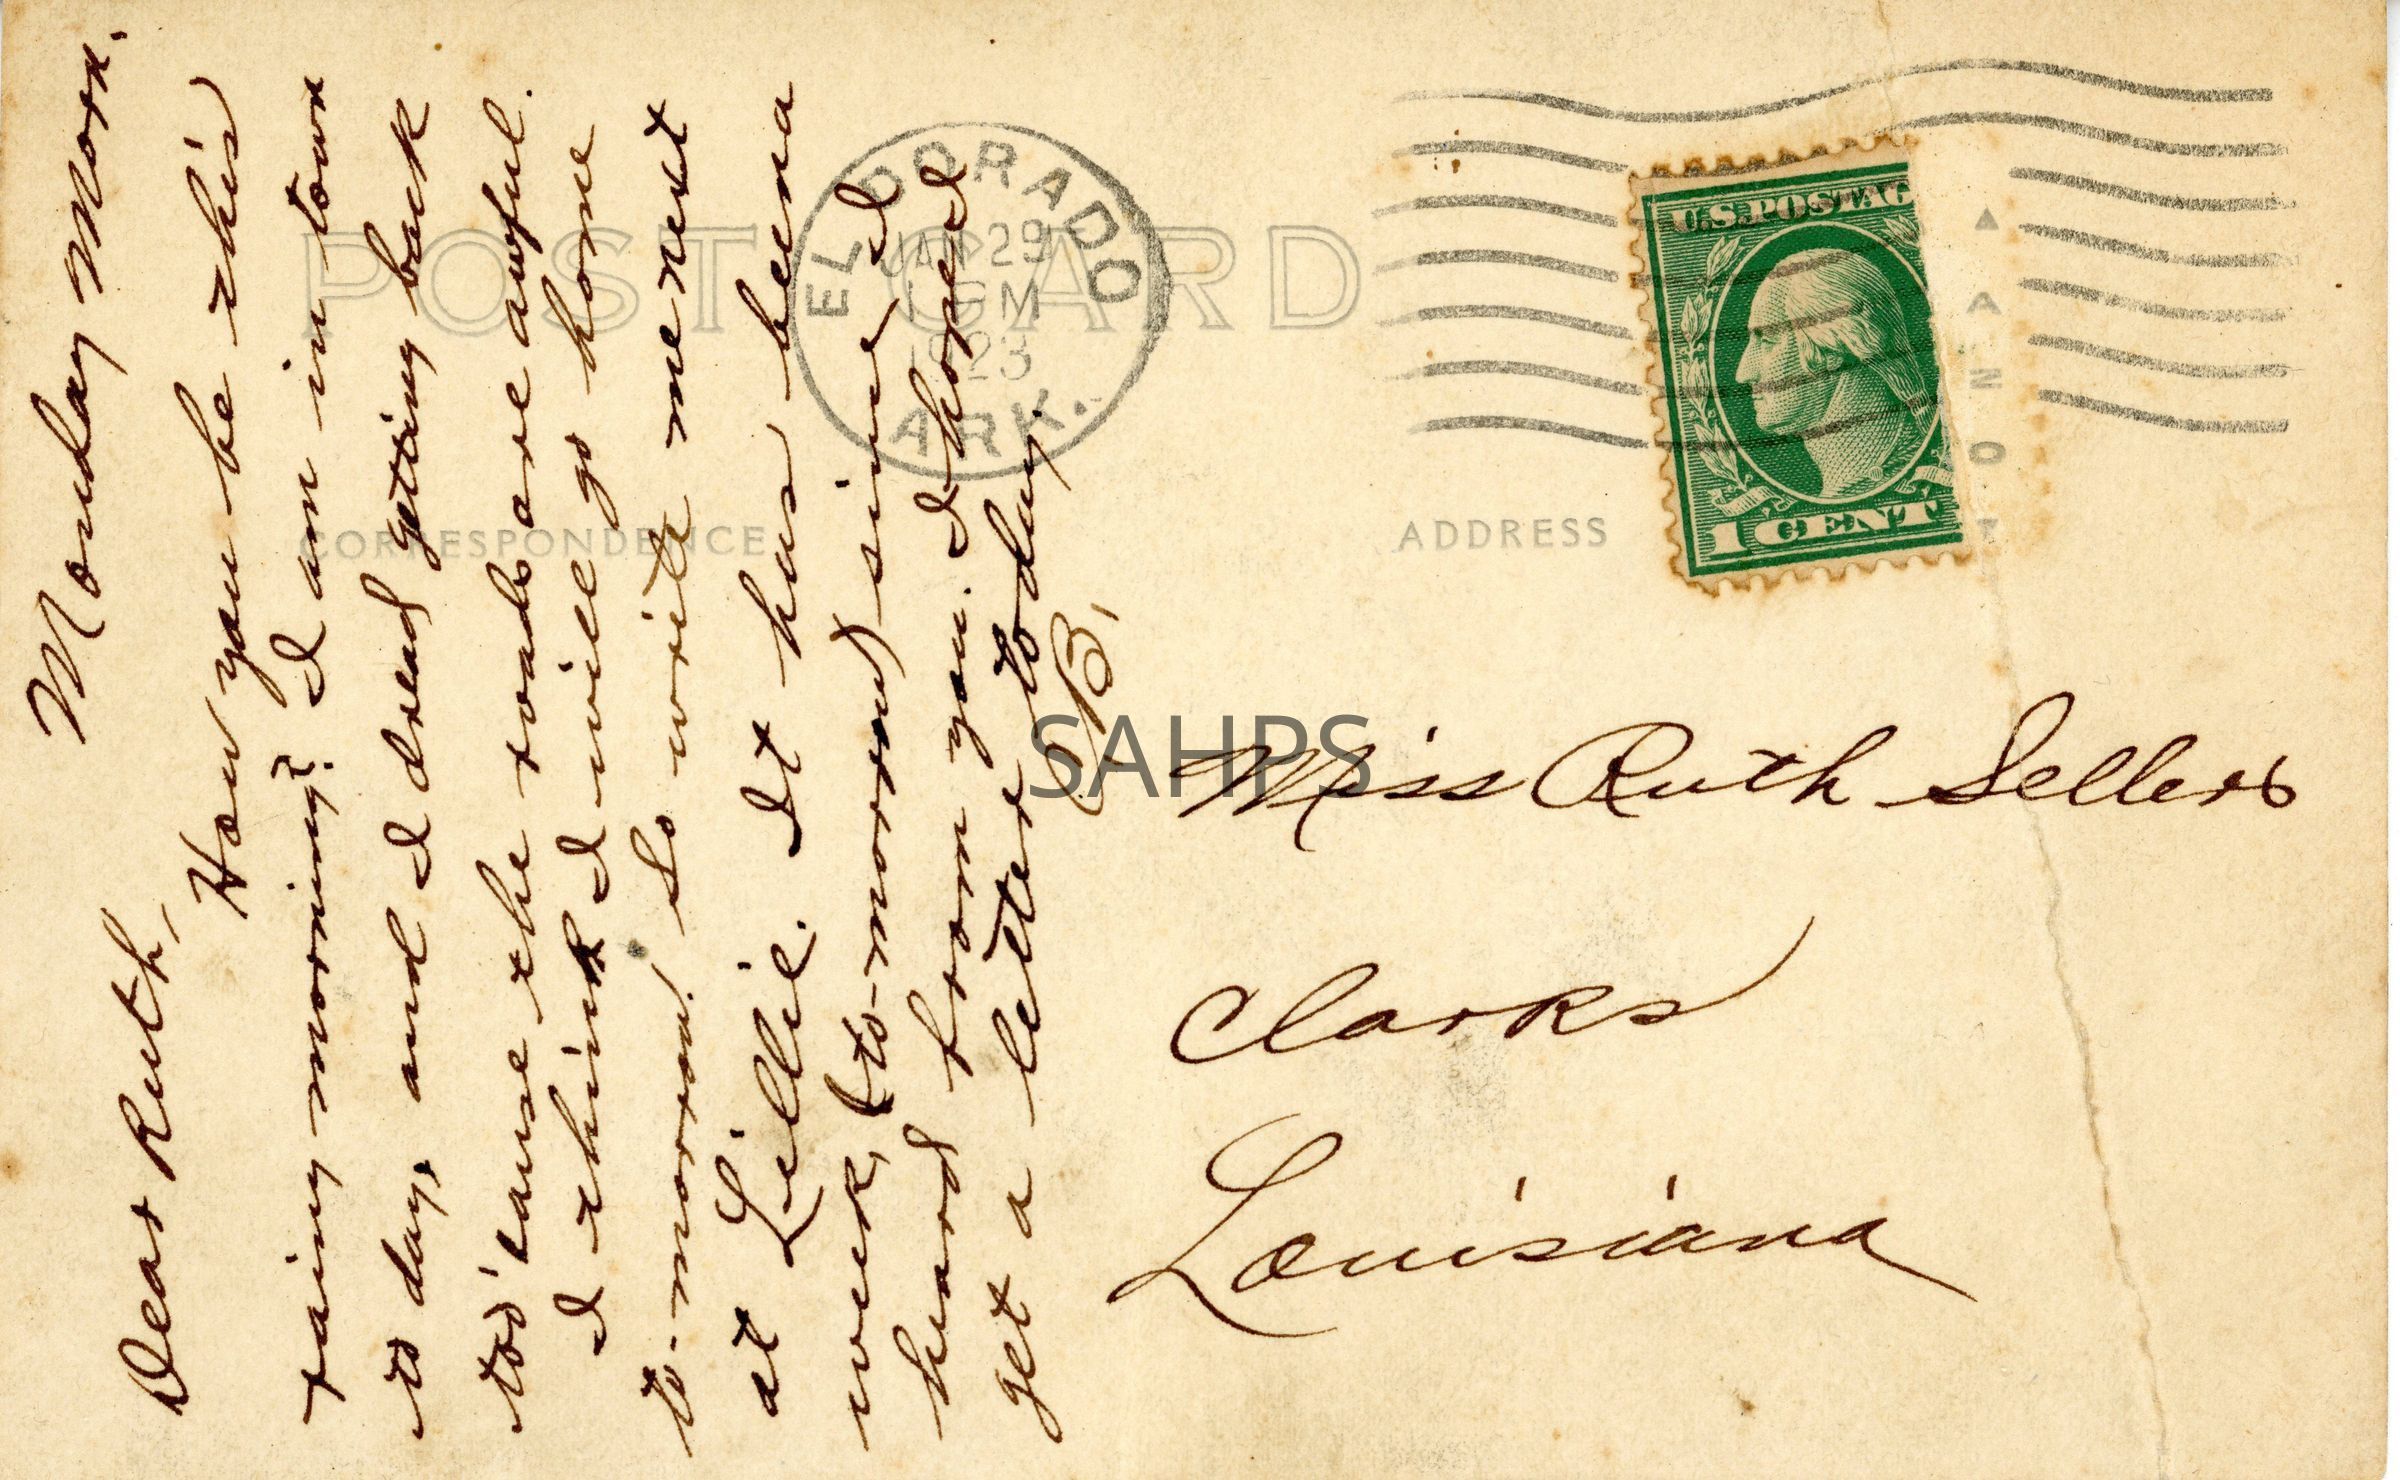 Monday Morn.
Dear Ruth,
How you be this
rainy morning? I am in town
to day, and I dread getting back
too' cause the roads are awful.
I think I will go home
to-morrow! So write me next
at Lillie. It has been a
week, (to-morrow) since I
heard from you. I hoped I
get a letter to day.
B.
POST CARD
CORRESPONDENCE
ADDRESS
EL DORADO
JAN 29
M
1923
ARK.
U.S. POSTAG
1 CENT
AZNOT
SAHPS
Miss Ruth Sellers
Clarks
Louisiana